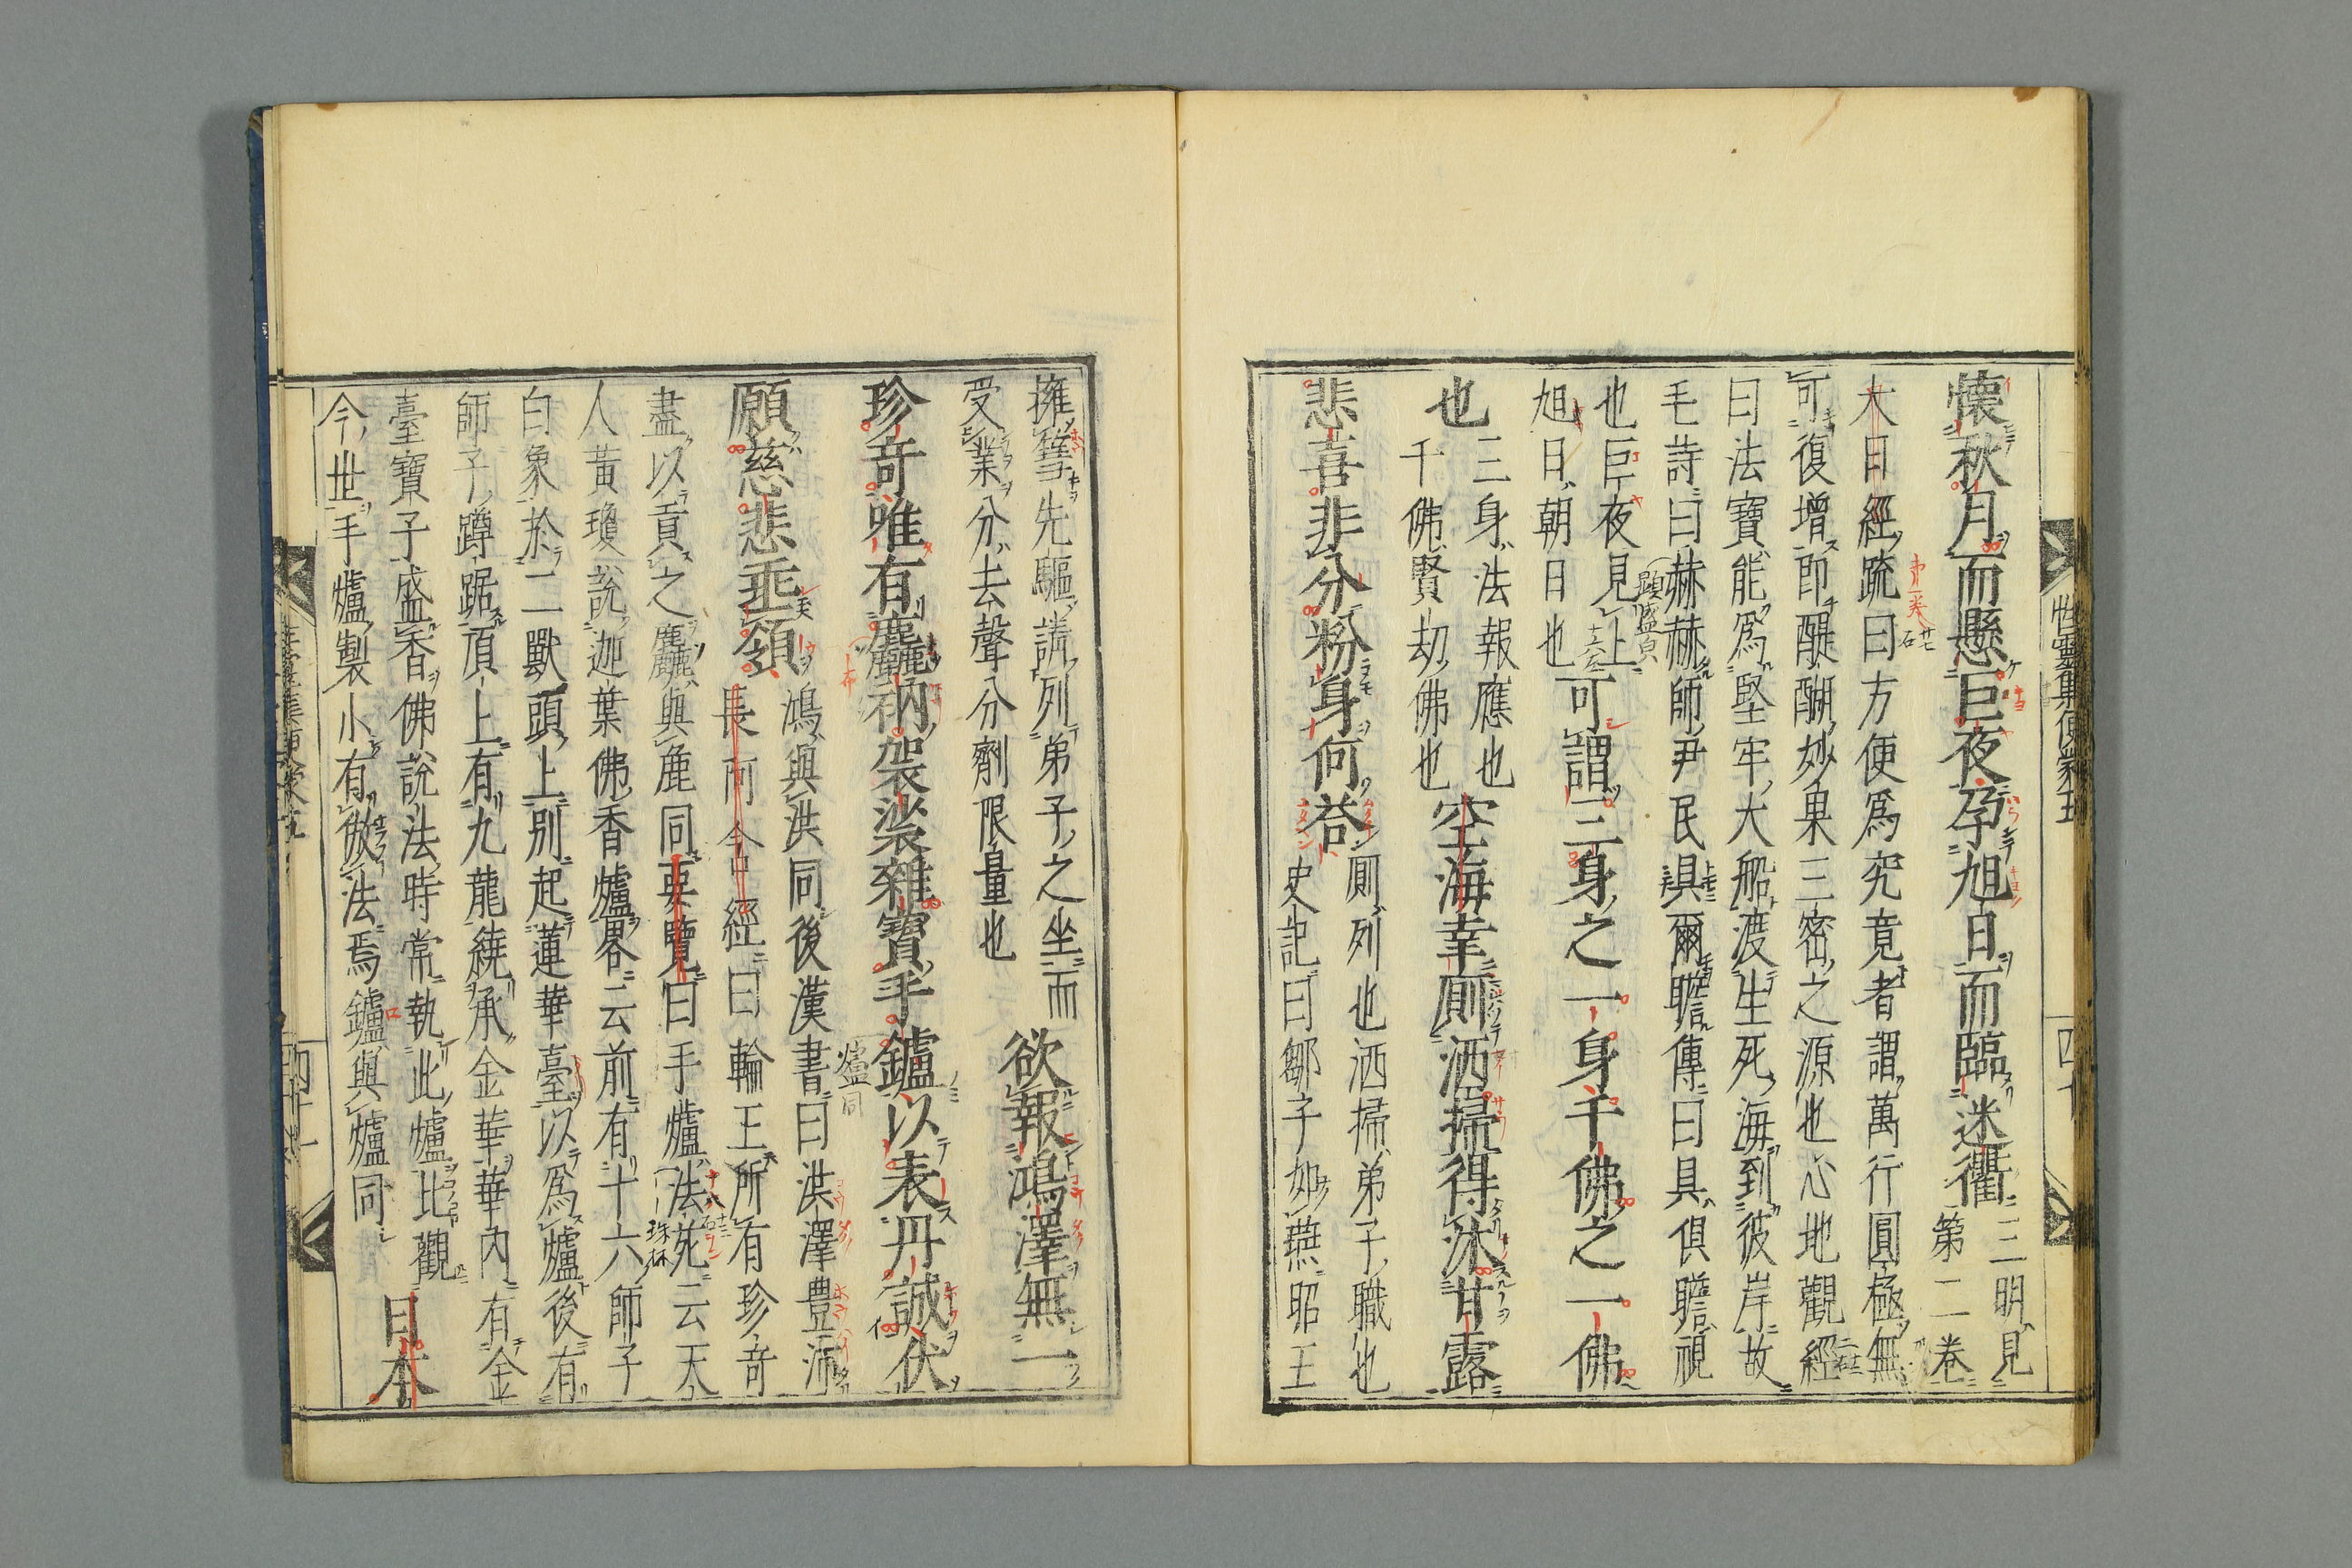 懷秋月而懸巨夜孕旭日而臨迷衢三明見
第二卷
大日經疏曰方便爲究竟者謂萬行圓極無
可復增即醍醐妙果三密之源也心地觀經
曰法寶能爲堅牢大船渡生死海到彼岸故
毛詩曰赫赫師尹民具爾瞻傳曰具俱瞻視
也巨夜見上
旭日朝日也
可謂三身之一身千佛之一佛
也
三身法報應也
千佛賢劫佛也
空海幸厠洒掃得沐甘露
悲喜非分粉身何荅
厠列也洒掃弟子職也
史記曰鄒子如燕昭王
擁篲先驅請列弟子之坐而
受業分去聲分劑限量也
欲報鴻澤無一
珍奇唯有麤衲袈裟雜寶手鑪以表丹誠伏
願慈悲垂領
鴻與洪同後漢書曰洪澤豊沛
長阿含經曰輪王所有珍奇
盡以貢之麤與麁同要覽曰手爐法苑云天
人黃瓊說迦葉佛香爐畧云前有十六師子
白象於二獸頭上別起蓮華臺以爲爐後有
師子蹲踞頂上有九龍繞承金華華内有金
臺寶子盛香佛說法時常執此爐比觀
今世手爐製小有倣法焉鑪與爐同
日本
性靈集便蒙五